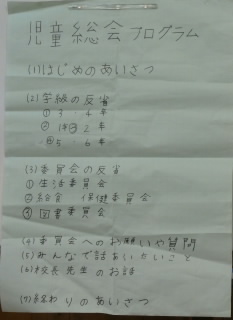 児童総会プログラム
(1)はじめのあいさつ
(2)学級の反省
① 3・4年
② 1年 2年
③ 5・6年
(3)委員会の反省
①生活委員会
②給食 保健委員会
③図書委員会
(4)委員会へのお願いや質問
(5)みんなで話あいたいこと
(6)校長先生のお話
(7)終わりのあいさつ